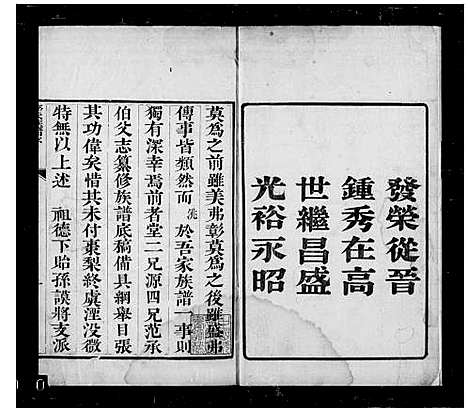 發榮從晉
鍾秀在高
世繼昌盛
光裕永昭
莫為之前雖美弗彰莫為之後雖盛弗
傳事皆類然而 洗 於吾家族譜一事則
獨有深幸焉前者堂二兄源四兄范承
伯父志纂修族譜底稿備具綱舉目張
其功偉矣惜其未付棗梨終虞湮没微
特無以上述 祖德下貽孫謨將支派